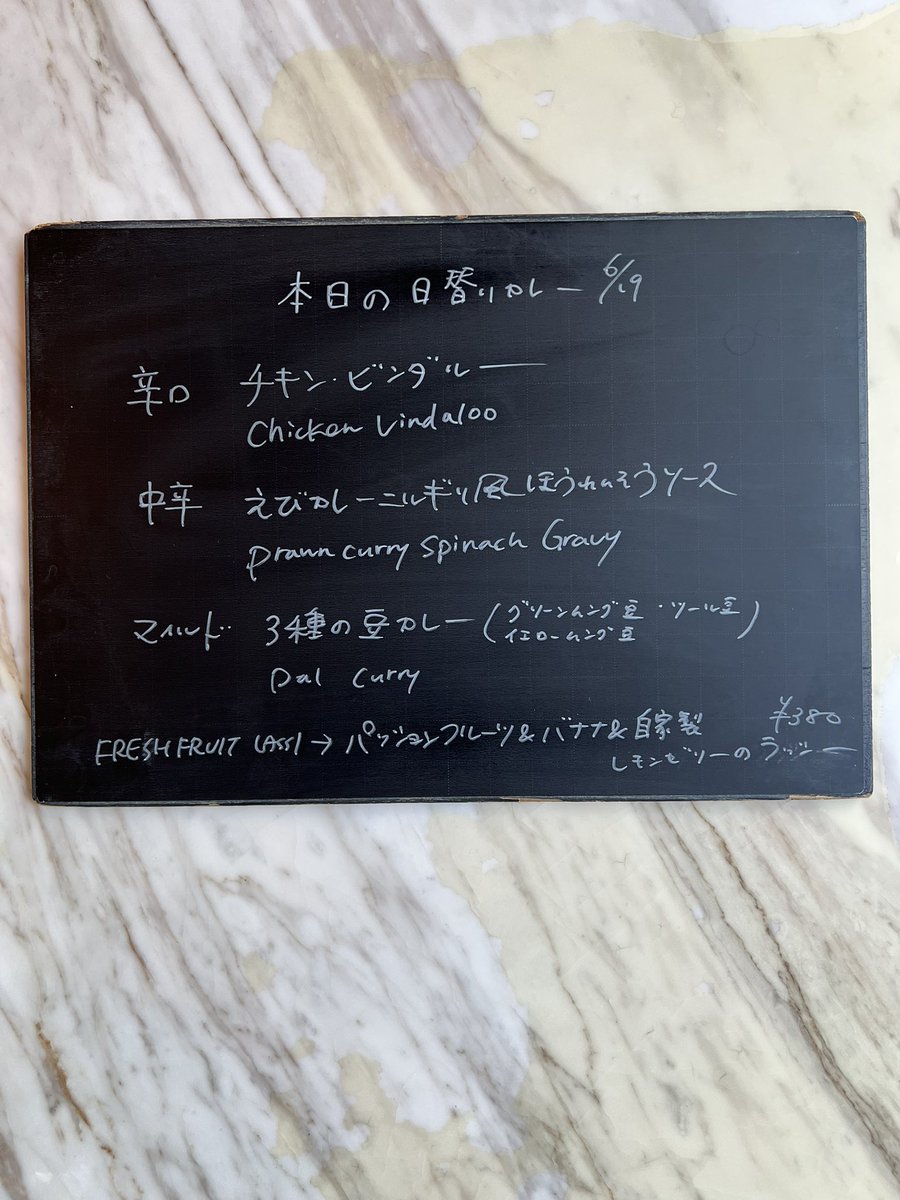 本日の日替りカレー 6/19
辛口 チキン・ビンダルー
Chicken Vindaloo
中辛 えびカレーニルギリ風ほうれんそうソース
Prawn curry Spinach Gravy
マイルド 3種の豆カレー(グリーンムング豆・ツール豆
イエロームング豆)
Dal curry
FRESH FRUIT LASSI→パッションフルーツ&バナナ&自家製 ¥380
レモンゼリーのラッシー